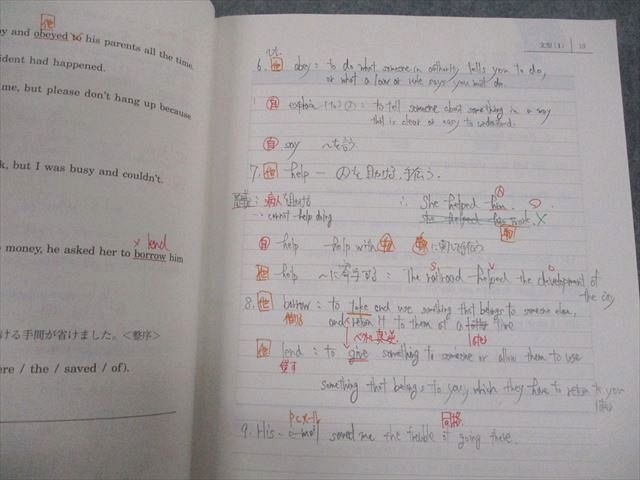 他
y and obeyed to his parents all the time.
ident had happened.
me, but please don't hang up because
k, but I was busy and couldn't.
× lend
money, he asked her to borrow him
ける手間が省けました。<整序>
ere / the / saved / of).
文型(1) 13
vt.
6. 他 obey : to do what someone in authority tells you to do,
or what a law or rule says you must do.
自 explain (to) 人 : to tell someone about something in a way
that is clear or easy to understand.
自 say ～を言う
7. 他 help - 人を助ける, 手伝う
∴ She helped him. ○
cannot help doing
she helped his work. ×
自 help help with 物
他 help ～に寄与する : The railroad helped the development of
S V O
the city
8. 他 borrow : to take and use something that belongs to someone else,
借りる and return it to them at a time
later
他 lend : to give something to someone or allow them to use
貸す
something that belongs to you, which they have to return to you
later
9. His e-mail saved me the trouble of going there.
同格